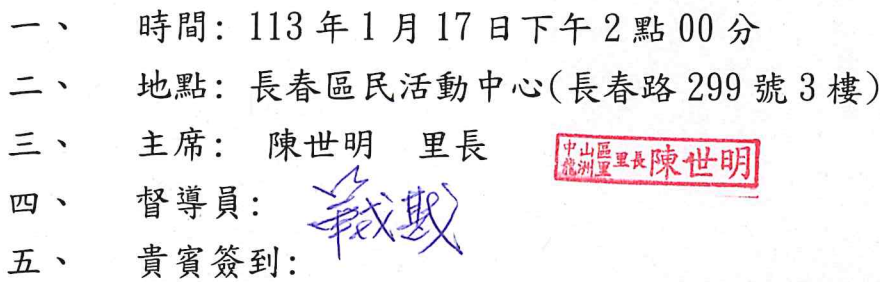 一、 時間: 113 年 1 月 17 日下午 2 點 00 分
二、 地點: 長春區民活動中心(長春路 299 號 3 樓)
三、 主席: 陳世明 里長
中山區龍洲里里長陳世明
四、 督導員:
五、 貴賓簽到: